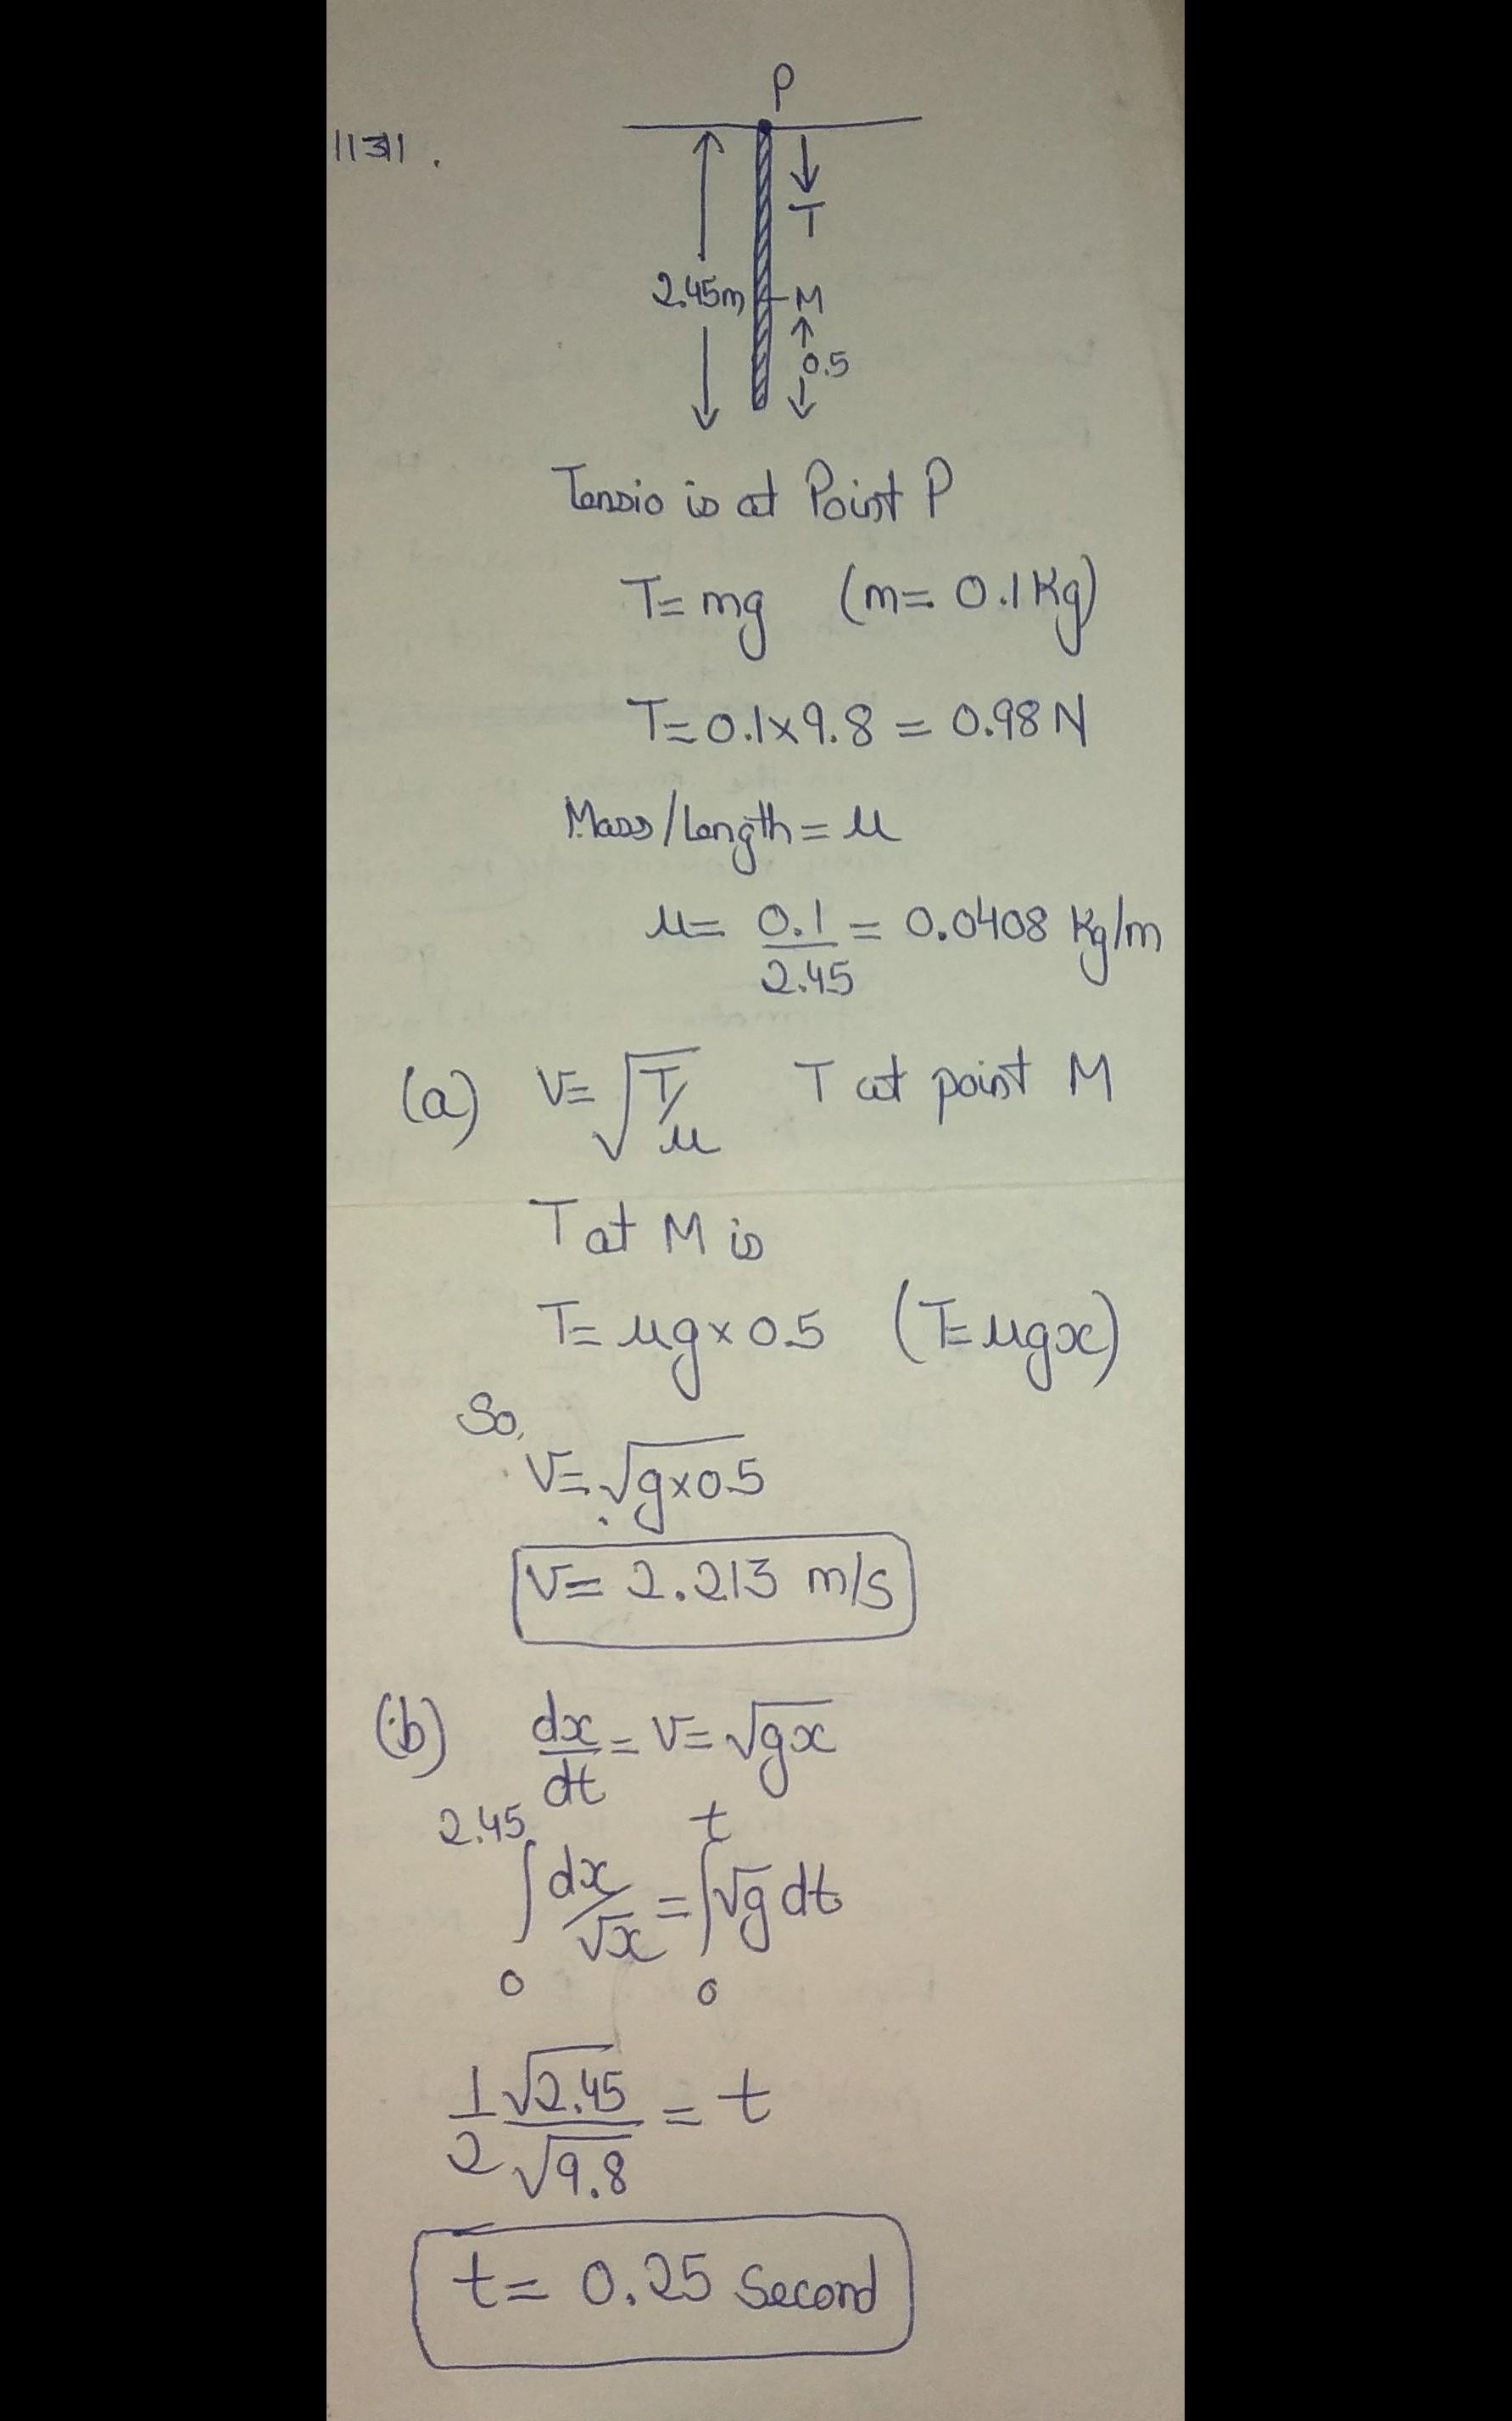 P
1131.
T
2.45m
M
0.5
Tensio is at Point P
T= mg (m= 0.1Kg)
T= 0.1×9.8 = 0.98 N
Mass/Length = μ
μ= 0.1/2.45 = 0.0408 Kg/m
(a) V= √T/μ T at point M
T at M is
T= μg×0.5 (T= μgx)
So,
V= √g×0.5
V= 2.213 m/s
(b) dx/dt = V= √gx
∫₀^2.45 dx/√x = ∫₀^t √g dt
1/2 √2.45/√9.8 = t
t= 0.25 Second